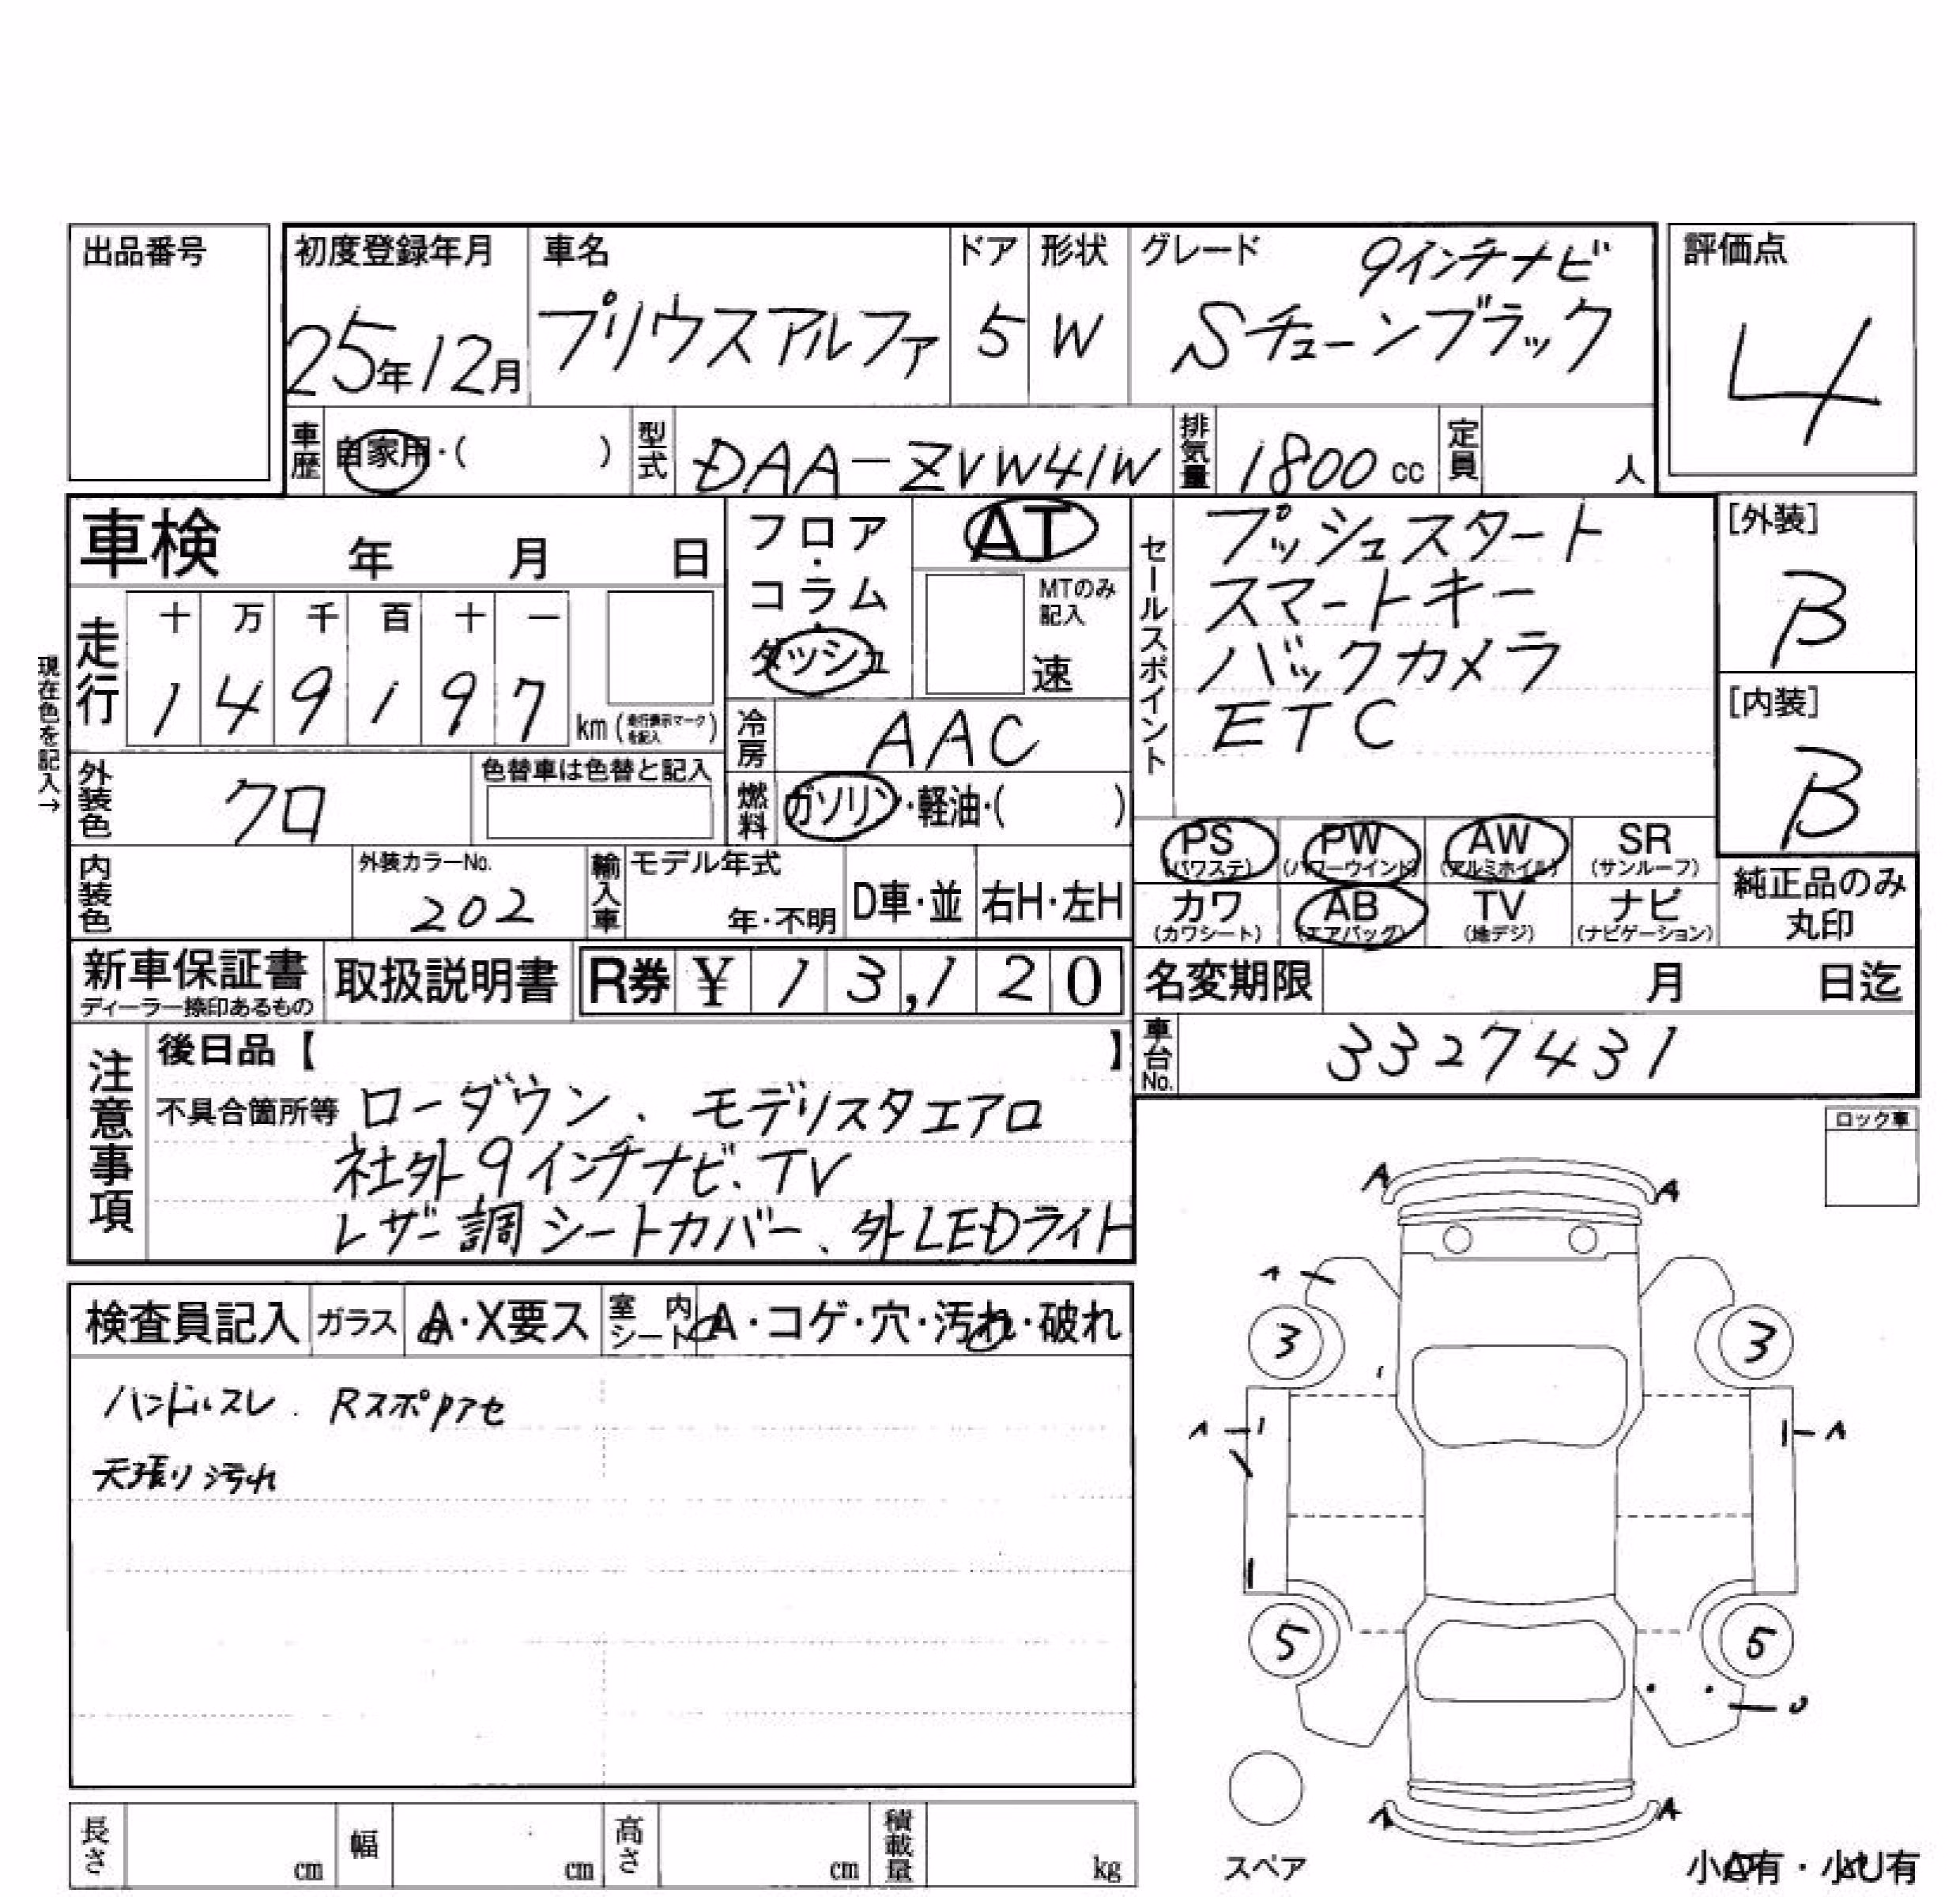 出品番号
初度登録年月 車名 ドア 形状 グレード 9インチナビ 評価点
25年12月 プリウスアルファ 5 W Sチューンブラック 4
車歴 自家用・( ) 型式 DAA-ZVW41W 排気量 1800cc 定員 人
車検 年 月 日
フロア・コラム・ダッシュ AT
MTのみ記入 速
セールスポイント
プッシュスタート
スマートキー
バックカメラ
ETC
[外装] B
[内装] B
現在色を記入→
走行 十 万 千 百 十 一
1 4 9 1 9 7 km (走行表示マークを記入)
冷房 AAC
外装色 クロ 色替車は色替と記入
燃料 ガソリン・軽油・( )
PS (パワステ) PW (パワーウインド) AW (アルミホイル) SR (サンルーフ)
カワ (カワシート) AB (エアバッグ) TV (地デジ) ナビ (ナビゲーション)
純正品のみ丸印
内装色 外装カラーNo. 202 輸入車 モデル年式 年・不明 D車・並 右H・左H
新車保証書 ディーラー捺印あるもの 取扱説明書 R券 ¥ 13,120
名変期限 月 日迄
車台No. 3327431
注意事項
後日品【 】
不具合箇所等 ローダウン、モデリスタエアロ
社外9インチナビ、TV
レザー調シートカバー、外LEDライト
ロック車
検査員記入 ガラス A・X要ス 室内シート A・コゲ・穴・汚れ・破れ
ハンドルスレ. Rスポ
天張り汚れ
A A
A
3 3
A A
5 5
U
A A
スペア
小A有・小U有
長さ cm 幅 cm 高さ cm 積載量 kg